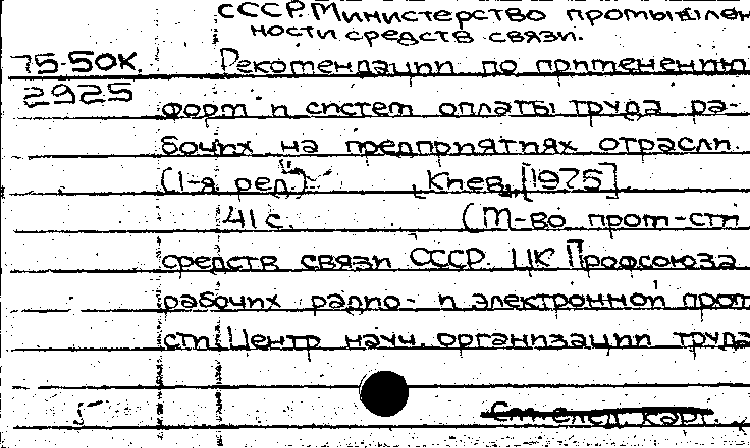 СССР. Министерство промышлен
ности средств связи.
75-50К. Рекомендации по применению
2925 форм и систем оплаты труда ра-
бочих на предприятиях отрасли.
(1-я ред.). Киев, [1975].
41 с. (М-во пром-сти
средств связи СССР. ЦК Профсоюза
рабочих радио- и электронной пром
сти. Центр науч. организации труда
5 См. след. карт.